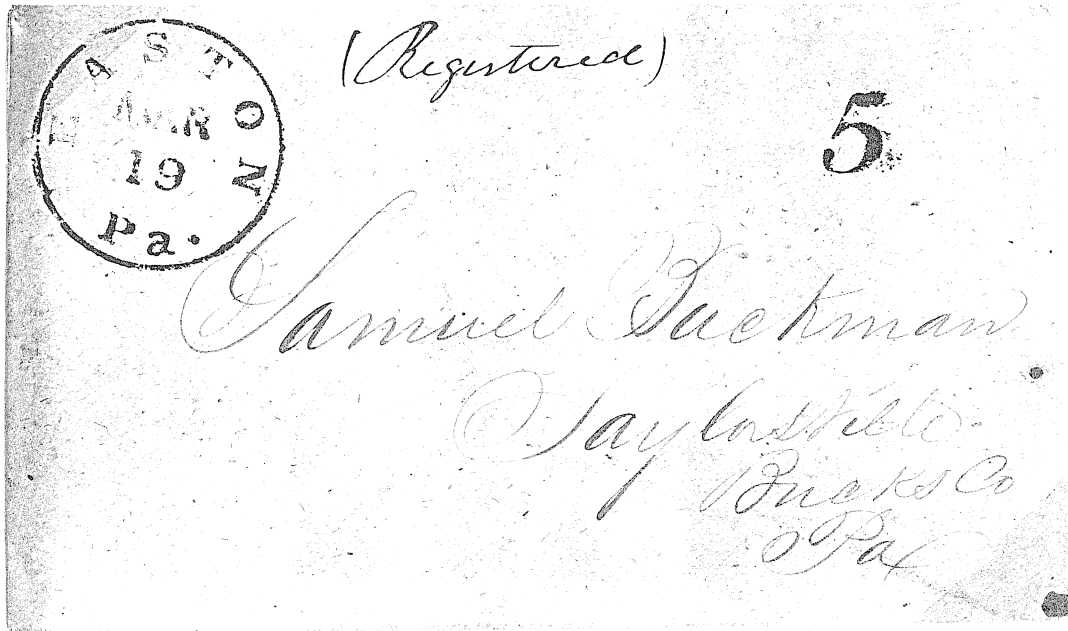 EASTON
MAR
19
Pa.
(Registered)
5
Samuel Buckman
Taylorsville
Bucks Co
Pa